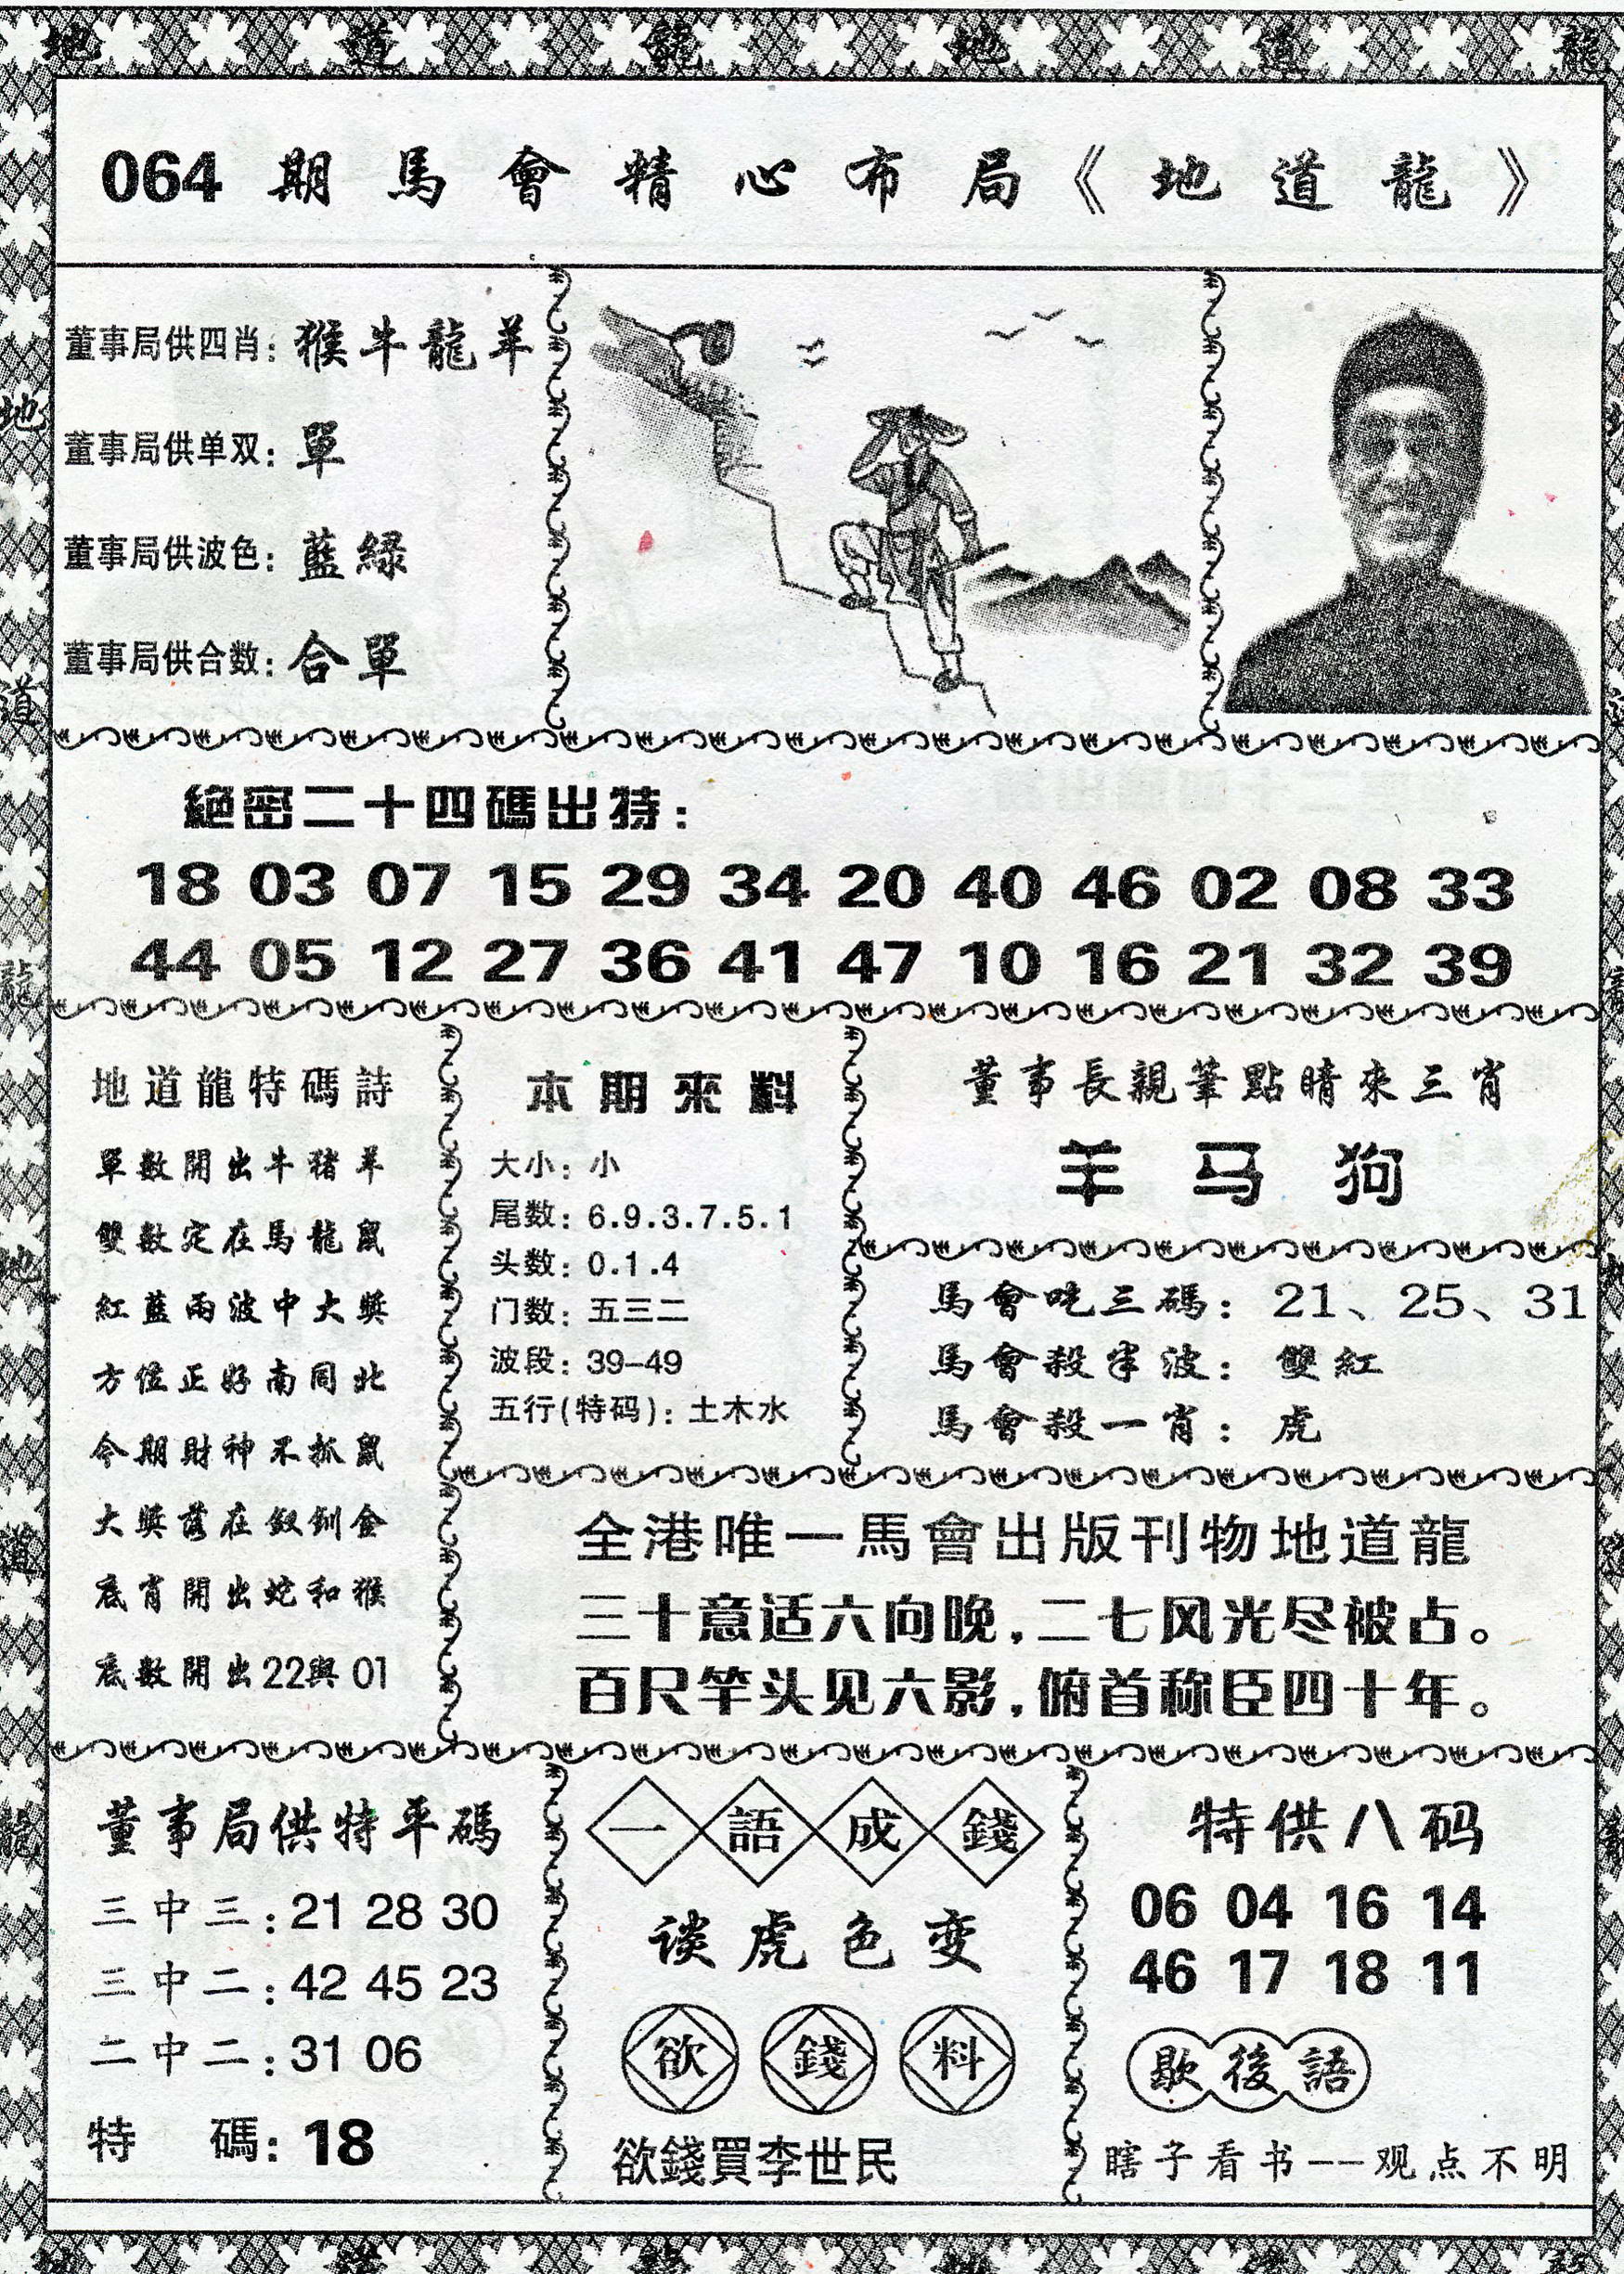 地 道 龍 地 道 龍
064 期 馬 會 精 心 布 局《 地 道 龍 》
董事局供四肖：猴牛龍羊
董事局供单双：單
董事局供波色：藍緑
董事局供合数：合單
絕密二十四碼出特：
18 03 07 15 29 34 20 40 46 02 08 33
44 05 12 27 36 41 47 10 16 21 32 39
地道龍特碼詩
單數開出牛豬羊
雙數定在馬龍鼠
紅藍兩波中大獎
方位正好南同北
今期財神不抓鼠
大獎落在釵釧金
底肖開出蛇和猴
底數開出22與01
本期來料
大小：小
尾数：6.9.3.7.5.1
头数：0.1.4
门数：五三二
波段：39–49
五行(特码)：土木水
董事長親筆點睛來三肖
羊 马 狗
馬會吃三碼：21、25、31
馬會殺半波：雙紅
馬會殺一肖：虎
全港唯一馬會出版刊物地道龍
三十意适六向晚，二七风光尽被占。
百尺竿头见六影，俯首称臣四十年。
董事局供特平碼
三中三：21 28 30
三中二：42 45 23
二中二：31 06
特 碼：18
一語成錢
谈虎色变
欲錢料
欲錢買李世民
特供八码
06 04 16 14
46 17 18 11
歇後語
瞎子看书——观点不明